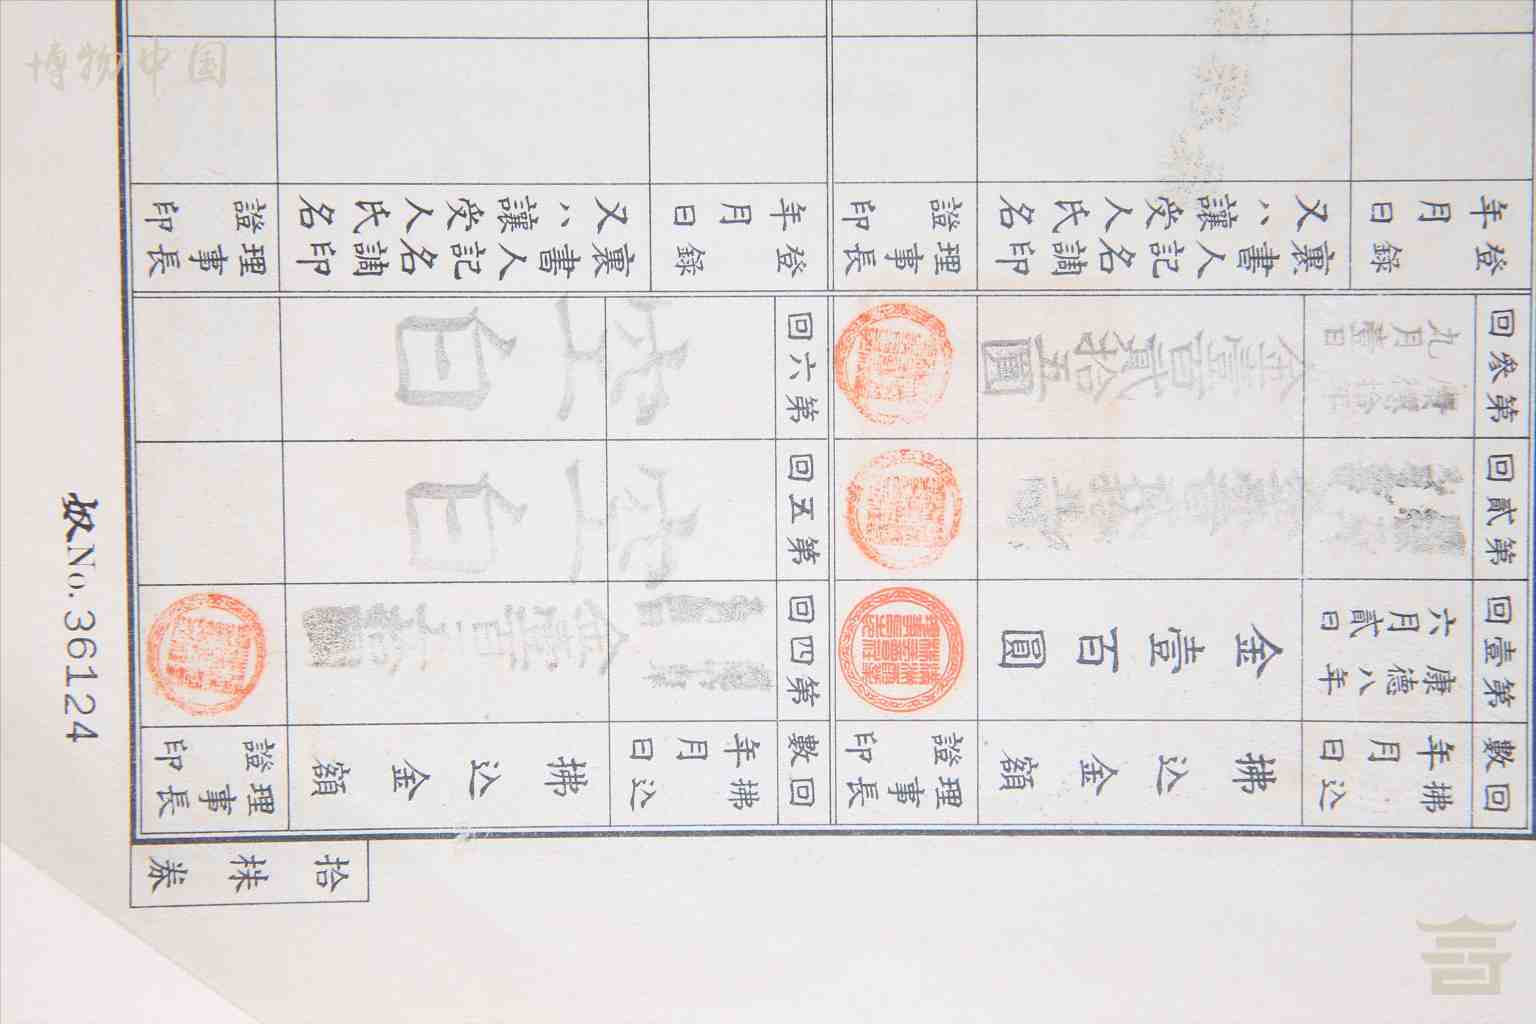 回數
拂込年月日
拂込金額
理事長證印
第壹回
康德八年六月貳日
金壹百圓
第貳回
第參回
康德拾年九月壹日
金壹百貳拾五圓
登錄年月日
裏書人記名調印
又ハ讓受人氏名
理事長證印
回數
拂込年月日
拂込金額
理事長證印
第四回
第五回
空白
第六回
空白
登錄年月日
裏書人記名調印
又ハ讓受人氏名
理事長證印
拾株券
No.36124
博物中国